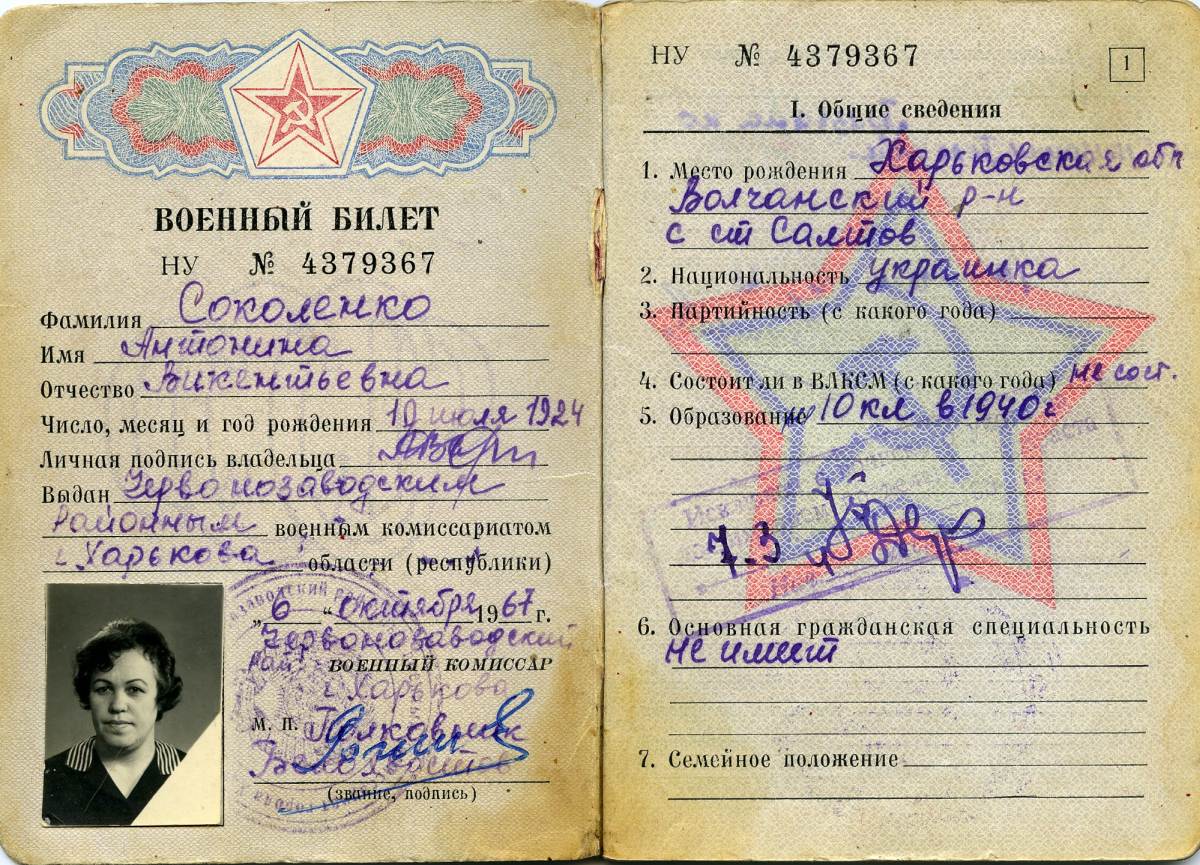 ВОЕННЫЙ БИЛЕТ
НУ № 4379367
Фамилия Соколенко
Имя Антонина
Отчество Викентьевна
Число, месяц и год рождения 10 июля 1924
Личная подпись владельца
Выдан Червонозаводским
Районным военным комиссариатом
г. Харькова области (республики)
„6“ октября 1967 г.
Червонозаводский
Рай ВОЕННЫЙ КОМИССАР
г. Харькова
М. П. Полковник
(звание, подпись)
НУ № 4379367
1
I. Общие сведения
1. Место рождения Харьковская обл
Волчанский р-н
с ст Салтов
2. Национальность украинка
3. Партийность (с какого года)
4. Состоит ли в ВЛКСМ (с какого года) не сост.
5. Образование 10 кл в 1940 г
7.3
6. Основная гражданская специальность
не имеет
7. Семейное положение